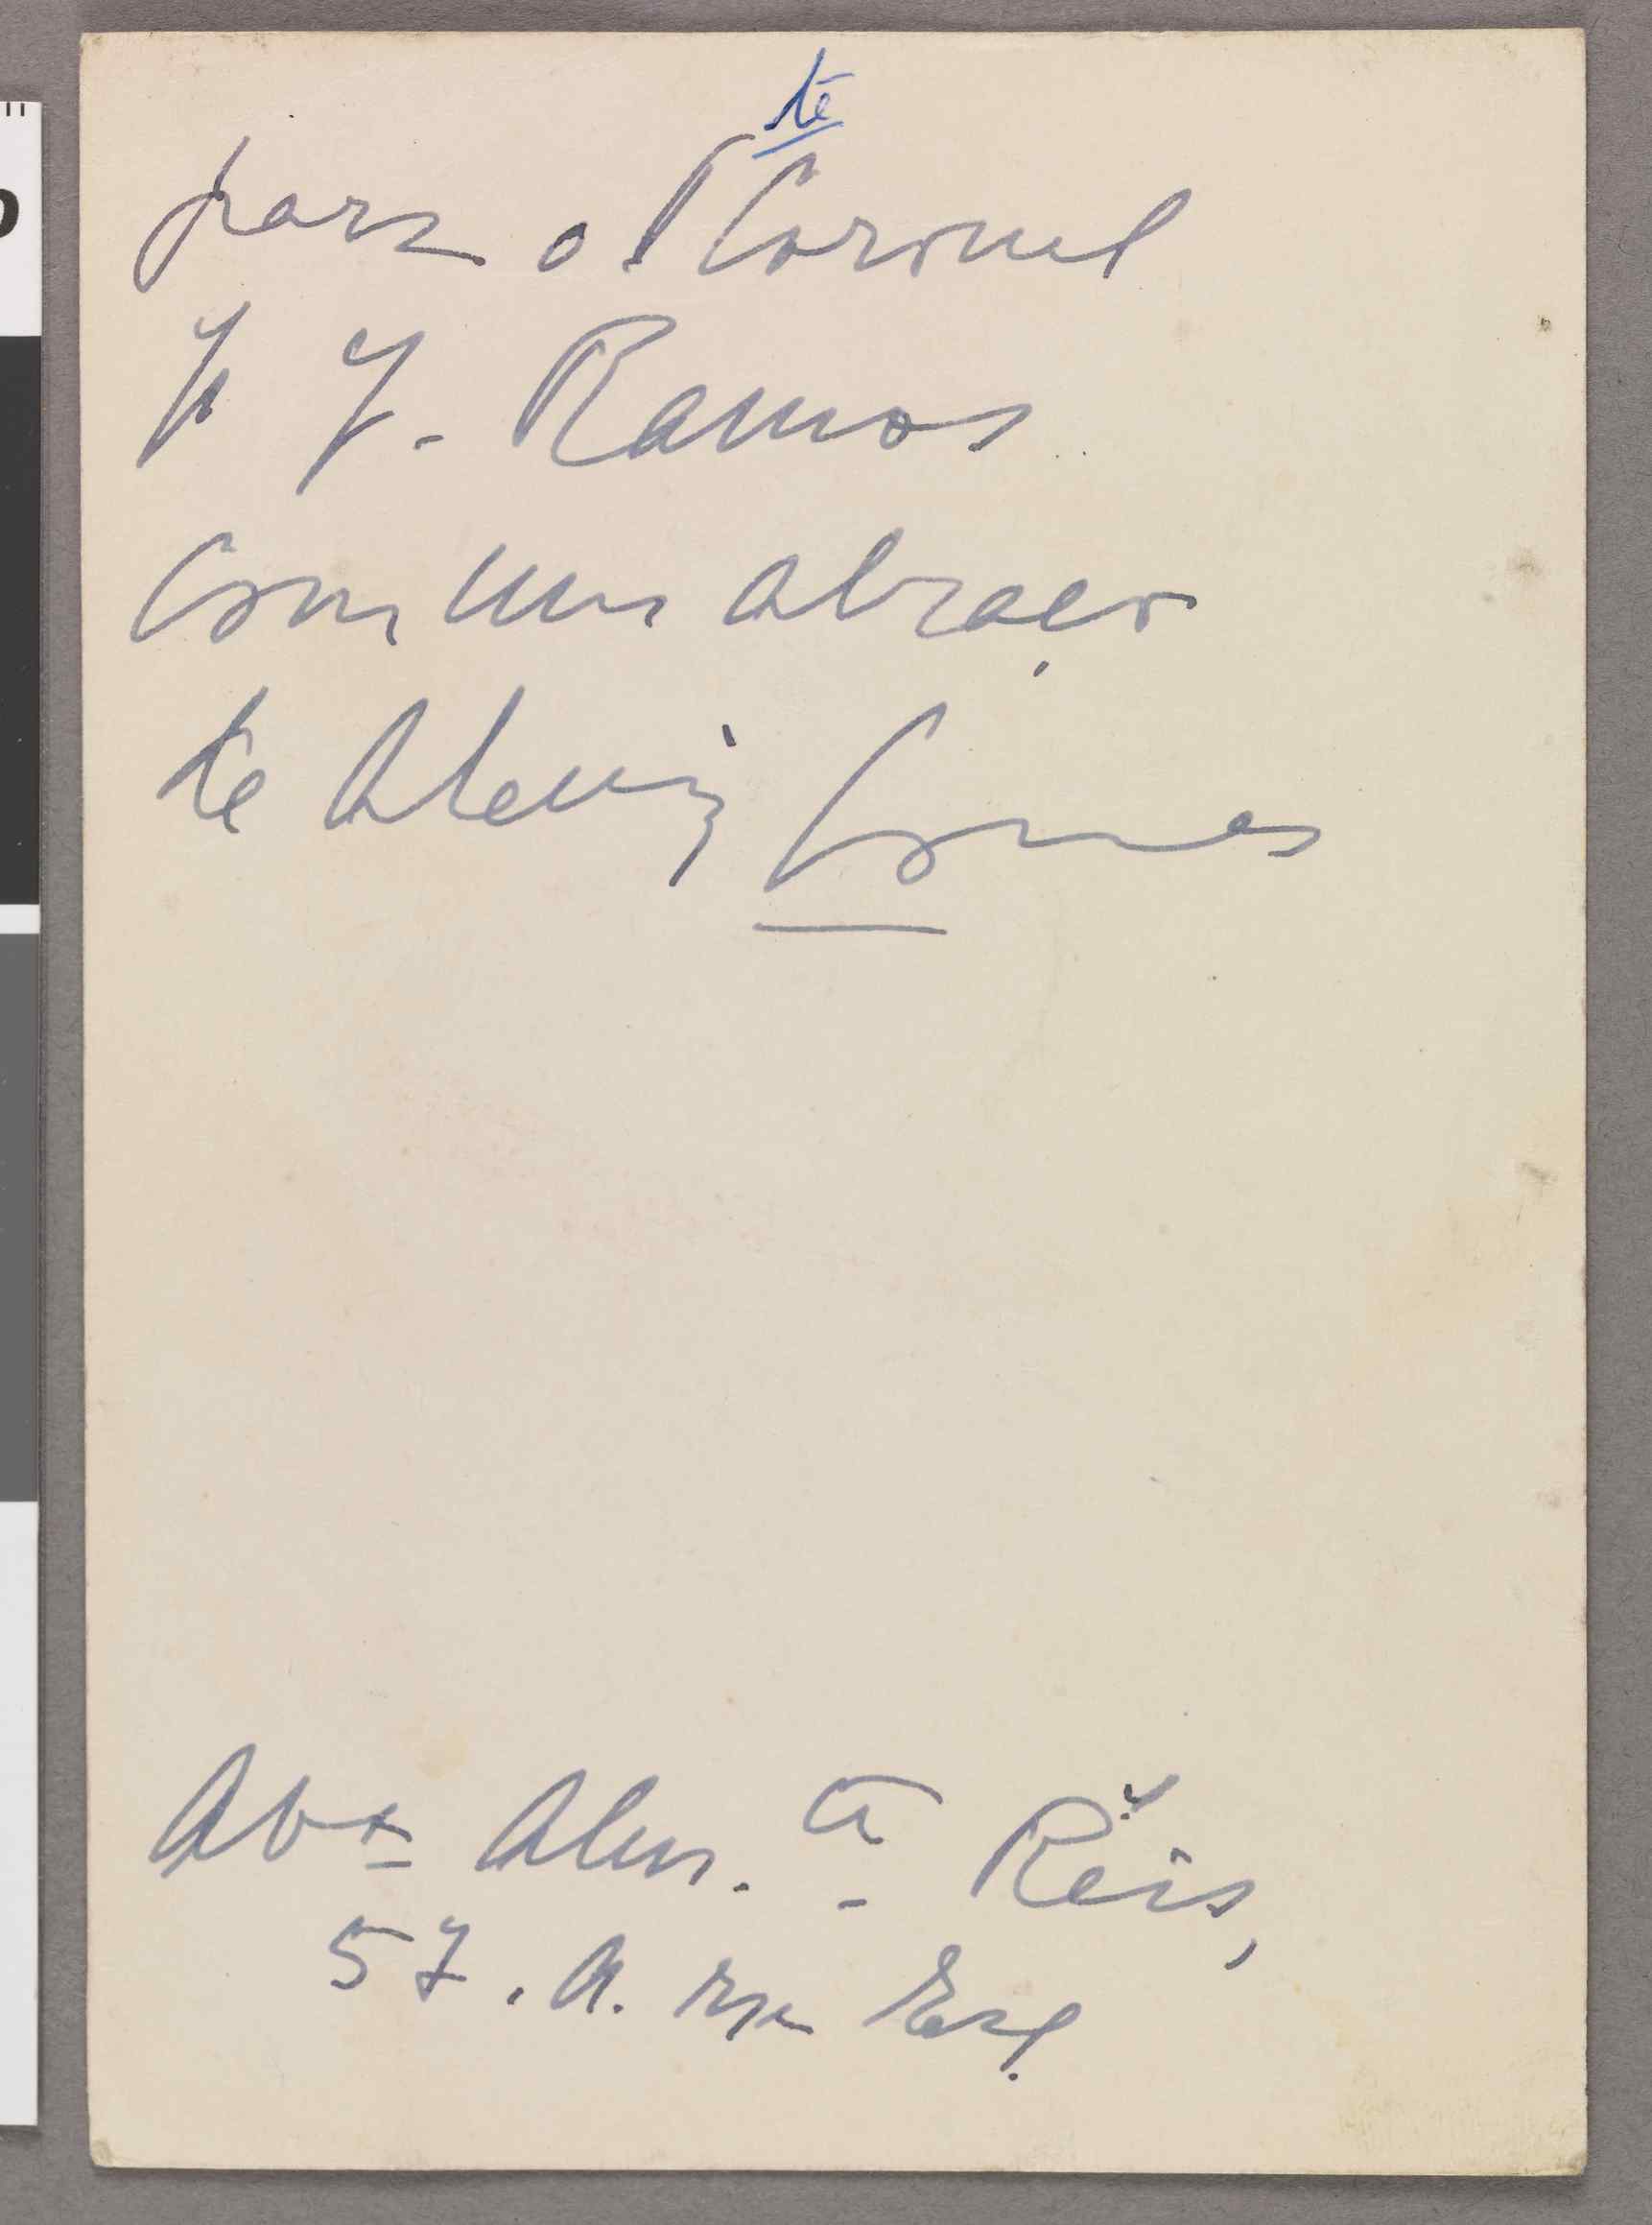 te
para o T Coronel
J. Ramos
com um abraço
de Aleu Gomes
Av. Alm. Reis,
57. A. r/c Esq.